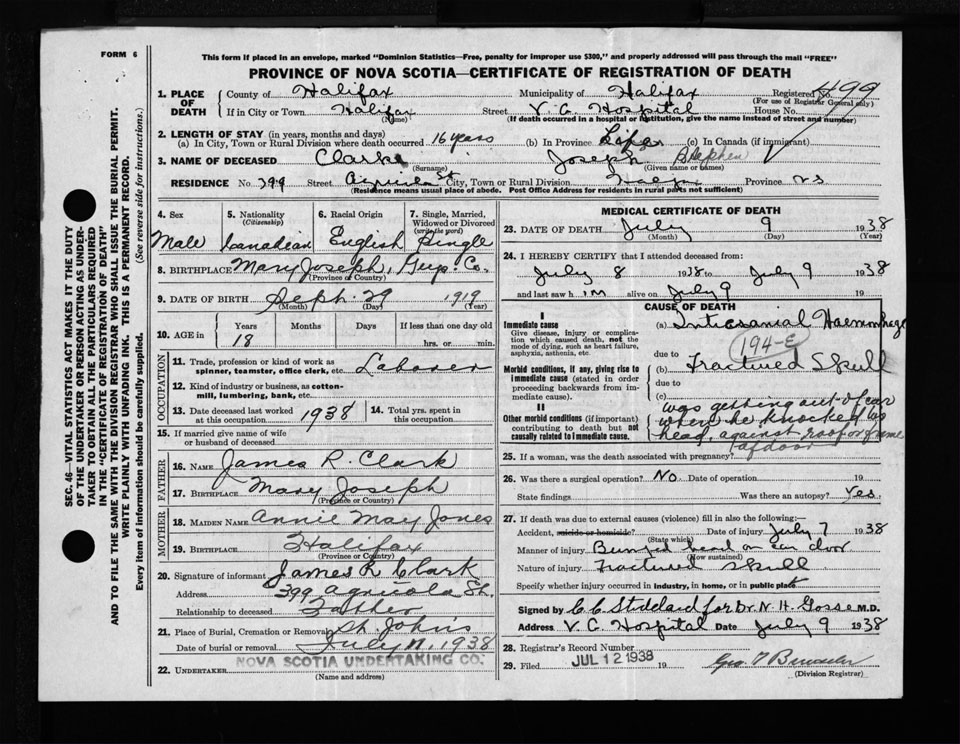 FORM 6
This form if placed in an envelope, marked "Dominion Statistics—Free, penalty for improper use $300," and properly addressed will pass through the mail "FREE"
PROVINCE OF NOVA SCOTIA—CERTIFICATE OF REGISTRATION OF DEATH
1. PLACE OF DEATH
County of Halifax Municipality of Halifax Registered No. 499
(For use of Registrar General only)
If in City or Town Halifax Street V. G. Hospital House No.
(Name) (If death occurred in a hospital or institution, give the name instead of street and number)
2. LENGTH OF STAY (in years, months and days)
(a) In City, Town or Rural Division where death occurred 16 years (b) In Province Life (c) In Canada (if immigrant)
3. NAME OF DECEASED Clarke Joseph Stephen
(Surname) (Given name or names)
RESIDENCE No. 399 Street Agricola St City, Town or Rural Division Halifax Province NS
(Residence means usual place of abode. Post Office Address for residents in rural parts not sufficient)
4. Sex 5. Nationality (Citizenship) 6. Racial Origin 7. Single, Married, Widowed or Divorced (write the word)
Male Canadian English Single
8. BIRTHPLACE Mary Joseph, Guy. Co.
(Province or Country)
9. DATE OF BIRTH Sept. 29 1919
(Month) (Day) (Year)
10. AGE in Years Months Days If less than one day old
18 hrs. or min.
OCCUPATION
11. Trade, profession or kind of work as spinner, teamster, office clerk, etc. Laborer
12. Kind of industry or business, as cotton-mill, lumbering, bank, etc.
13. Date deceased last worked at this occupation 1938 14. Total yrs. spent in this occupation
15. If married give name of wife or husband of deceased
FATHER
16. NAME James R. Clark
17. BIRTHPLACE Mary Joseph
(Province or Country)
MOTHER
18. MAIDEN NAME Annie May Jones
19. BIRTHPLACE Halifax
(Province or Country)
20. Signature of informant James R Clark
Address 399 Agricola St.
Relationship to deceased Father
21. Place of Burial, Cremation or Removal St. Johns
Date of burial or removal July 11, 1938
22. UNDERTAKER NOVA SCOTIA UNDERTAKING CO.
(Name and address)
MEDICAL CERTIFICATE OF DEATH
23. DATE OF DEATH July 9 1938
(Month) (Day) (Year)
24. I HEREBY CERTIFY that I attended deceased from:
July 8 1938 to July 9 1938
and last saw him alive on July 9 19
CAUSE OF DEATH
I
Immediate cause
Give disease, injury or complication which caused death, not the mode of dying, such as heart failure, asphyxia, asthenia, etc.
(a) Intracranial Haemorrhage
194-E
due to
Morbid conditions, if any, giving rise to immediate cause (stated in order proceeding backwards from immediate cause).
(b) Fractured Skull
due to
(c)
II
Other morbid conditions (if important) contributing to death but not causally related to immediate cause.
was getting out of car
when he knocked his
head against roof or frame
of door
25. If a woman, was the death associated with pregnancy?
26. Was there a surgical operation? No. Date of operation 19
State findings Was there an autopsy? Yes.
27. If death was due to external causes (violence) fill in also the following:—
Accident, suicide or homicide? Date of injury July 7 1938
(State which)
Manner of injury Bumped head on car door
(How sustained)
Nature of injury Fractured skull
Specify whether injury occurred in industry, in home, or in public place
Signed by C. C. Stoddard for Dr. N. H. Gosse M.D.
Address V. G. Hospital Date July 9 1938
28. Registrar's Record Number
29. Filed JUL 12 1938 19
(Division Registrar)
SEC. 46—VITAL STATISTICS ACT MAKES IT THE DUTY
OF THE UNDERTAKER OR PERSON ACTING AS UNDER-
TAKER TO OBTAIN ALL THE PARTICULARS REQUIRED
IN THE "CERTIFICATE OF REGISTRATION OF DEATH"
AND TO FILE THE SAME WITH THE DIVISION REGISTRAR WHO SHALL ISSUE THE BURIAL PERMIT.
WRITE PLAINLY WITH UNFADING INK. THIS IS A PERMANENT RECORD.
Every item of information should be carefully supplied. (See reverse side for instructions.)